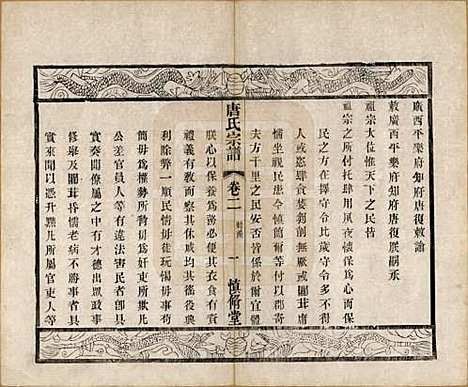 廣西平樂府知府唐復敕諭
敕廣西平樂府知府唐復朕嗣承
祖宗大位惟天下之民皆
祖宗之所付托肆用夙夜懷保爲心而
民之方得其所寄守令比歲守令多不
人或爲貪婪剝削無厭或闒茸庸
懦坐視民患令慎簡爾等付以郡寄
夫方千里之民安否皆係於爾宜體
唐氏宗譜
卷二
一
慎脩堂
朕心以保養爲務必使其衣食有資
禮義有教而察其休戚均其徭役興
利除弊一順民情毋徒玩愒毋事苛
簡毋爲權勢所脅毋爲奸吏所欺凡
公差官員人等有違法害民者卽具
實奏聞僚屬之中有才德出眾政事
修舉及闒茸老病不勝事者具
實來聞以憑黜凡所屬官吏人等